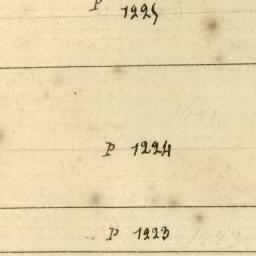 P 1225
P 1224
P 1223